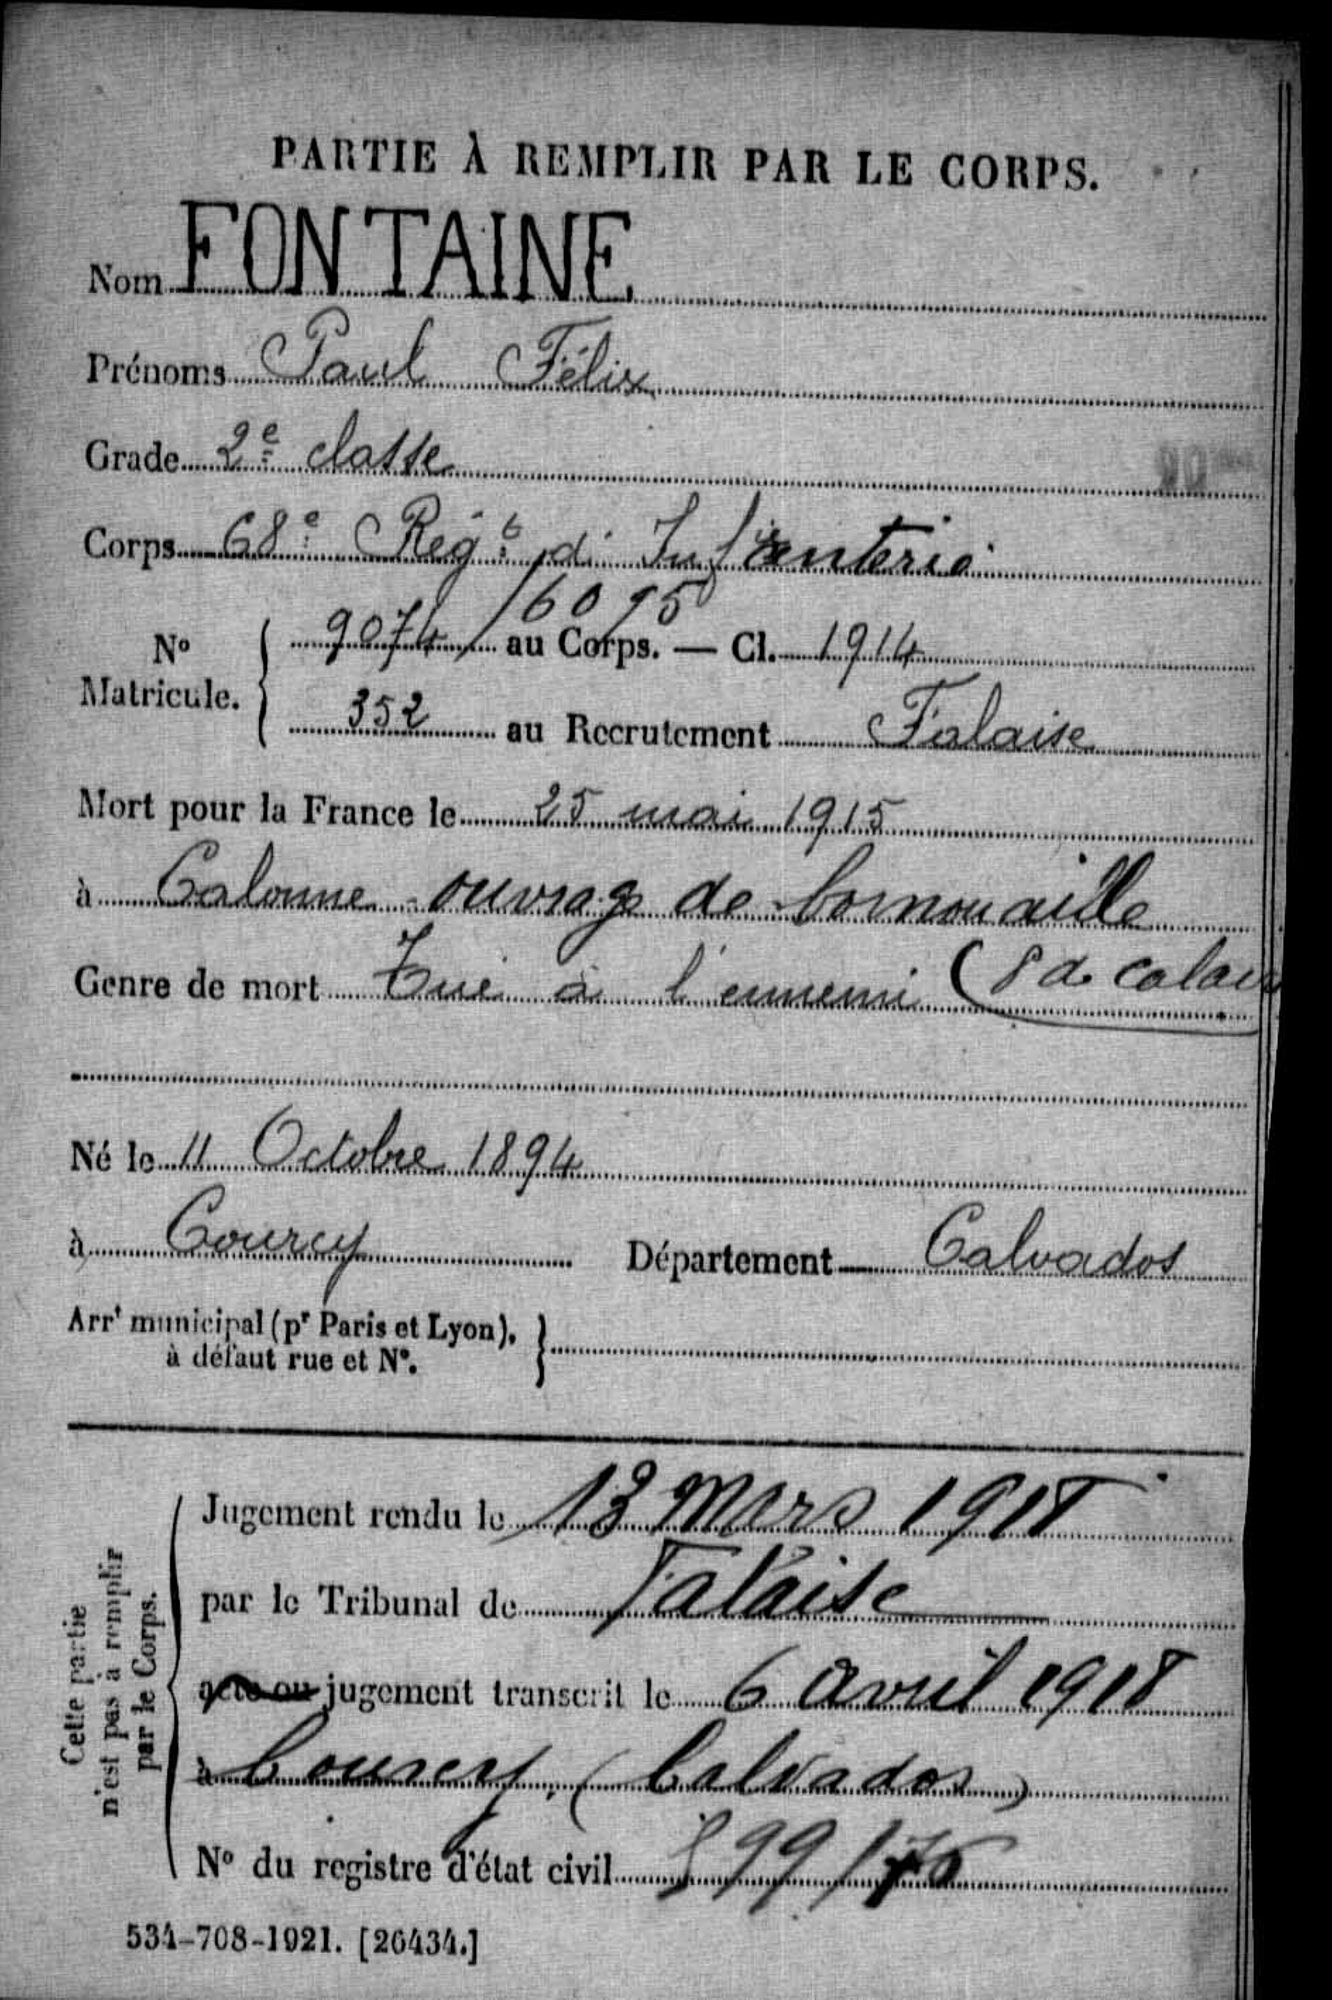 PARTIE À REMPLIR PAR LE CORPS.
Nom FONTAINE
Prénoms Paul Félix
Grade 2e classe
Corps 68e Régt d'Infanterie
16095
No Matricule. { 9074 / au Corps. — Cl. 1914
352 au Recrutement Falaise
Mort pour la France le 25 mai 1915
à Calonne ouvrage de Cornouaille
Genre de mort Tué à l'ennemi (P de Calais
Né le 11 Octobre 1894
à Courcy Département Calvados
Arrt municipal (pr Paris et Lyon), à défaut rue et No. }
Cette partie n'est pas à remplir par le Corps.
Jugement rendu le 13 Mars 1918
par le Tribunal de Falaise
acte ou jugement transcrit le 6 avril 1918
à Courcy. (Calvados)
No du registre d'état civil
534-708-1921. [26434.]